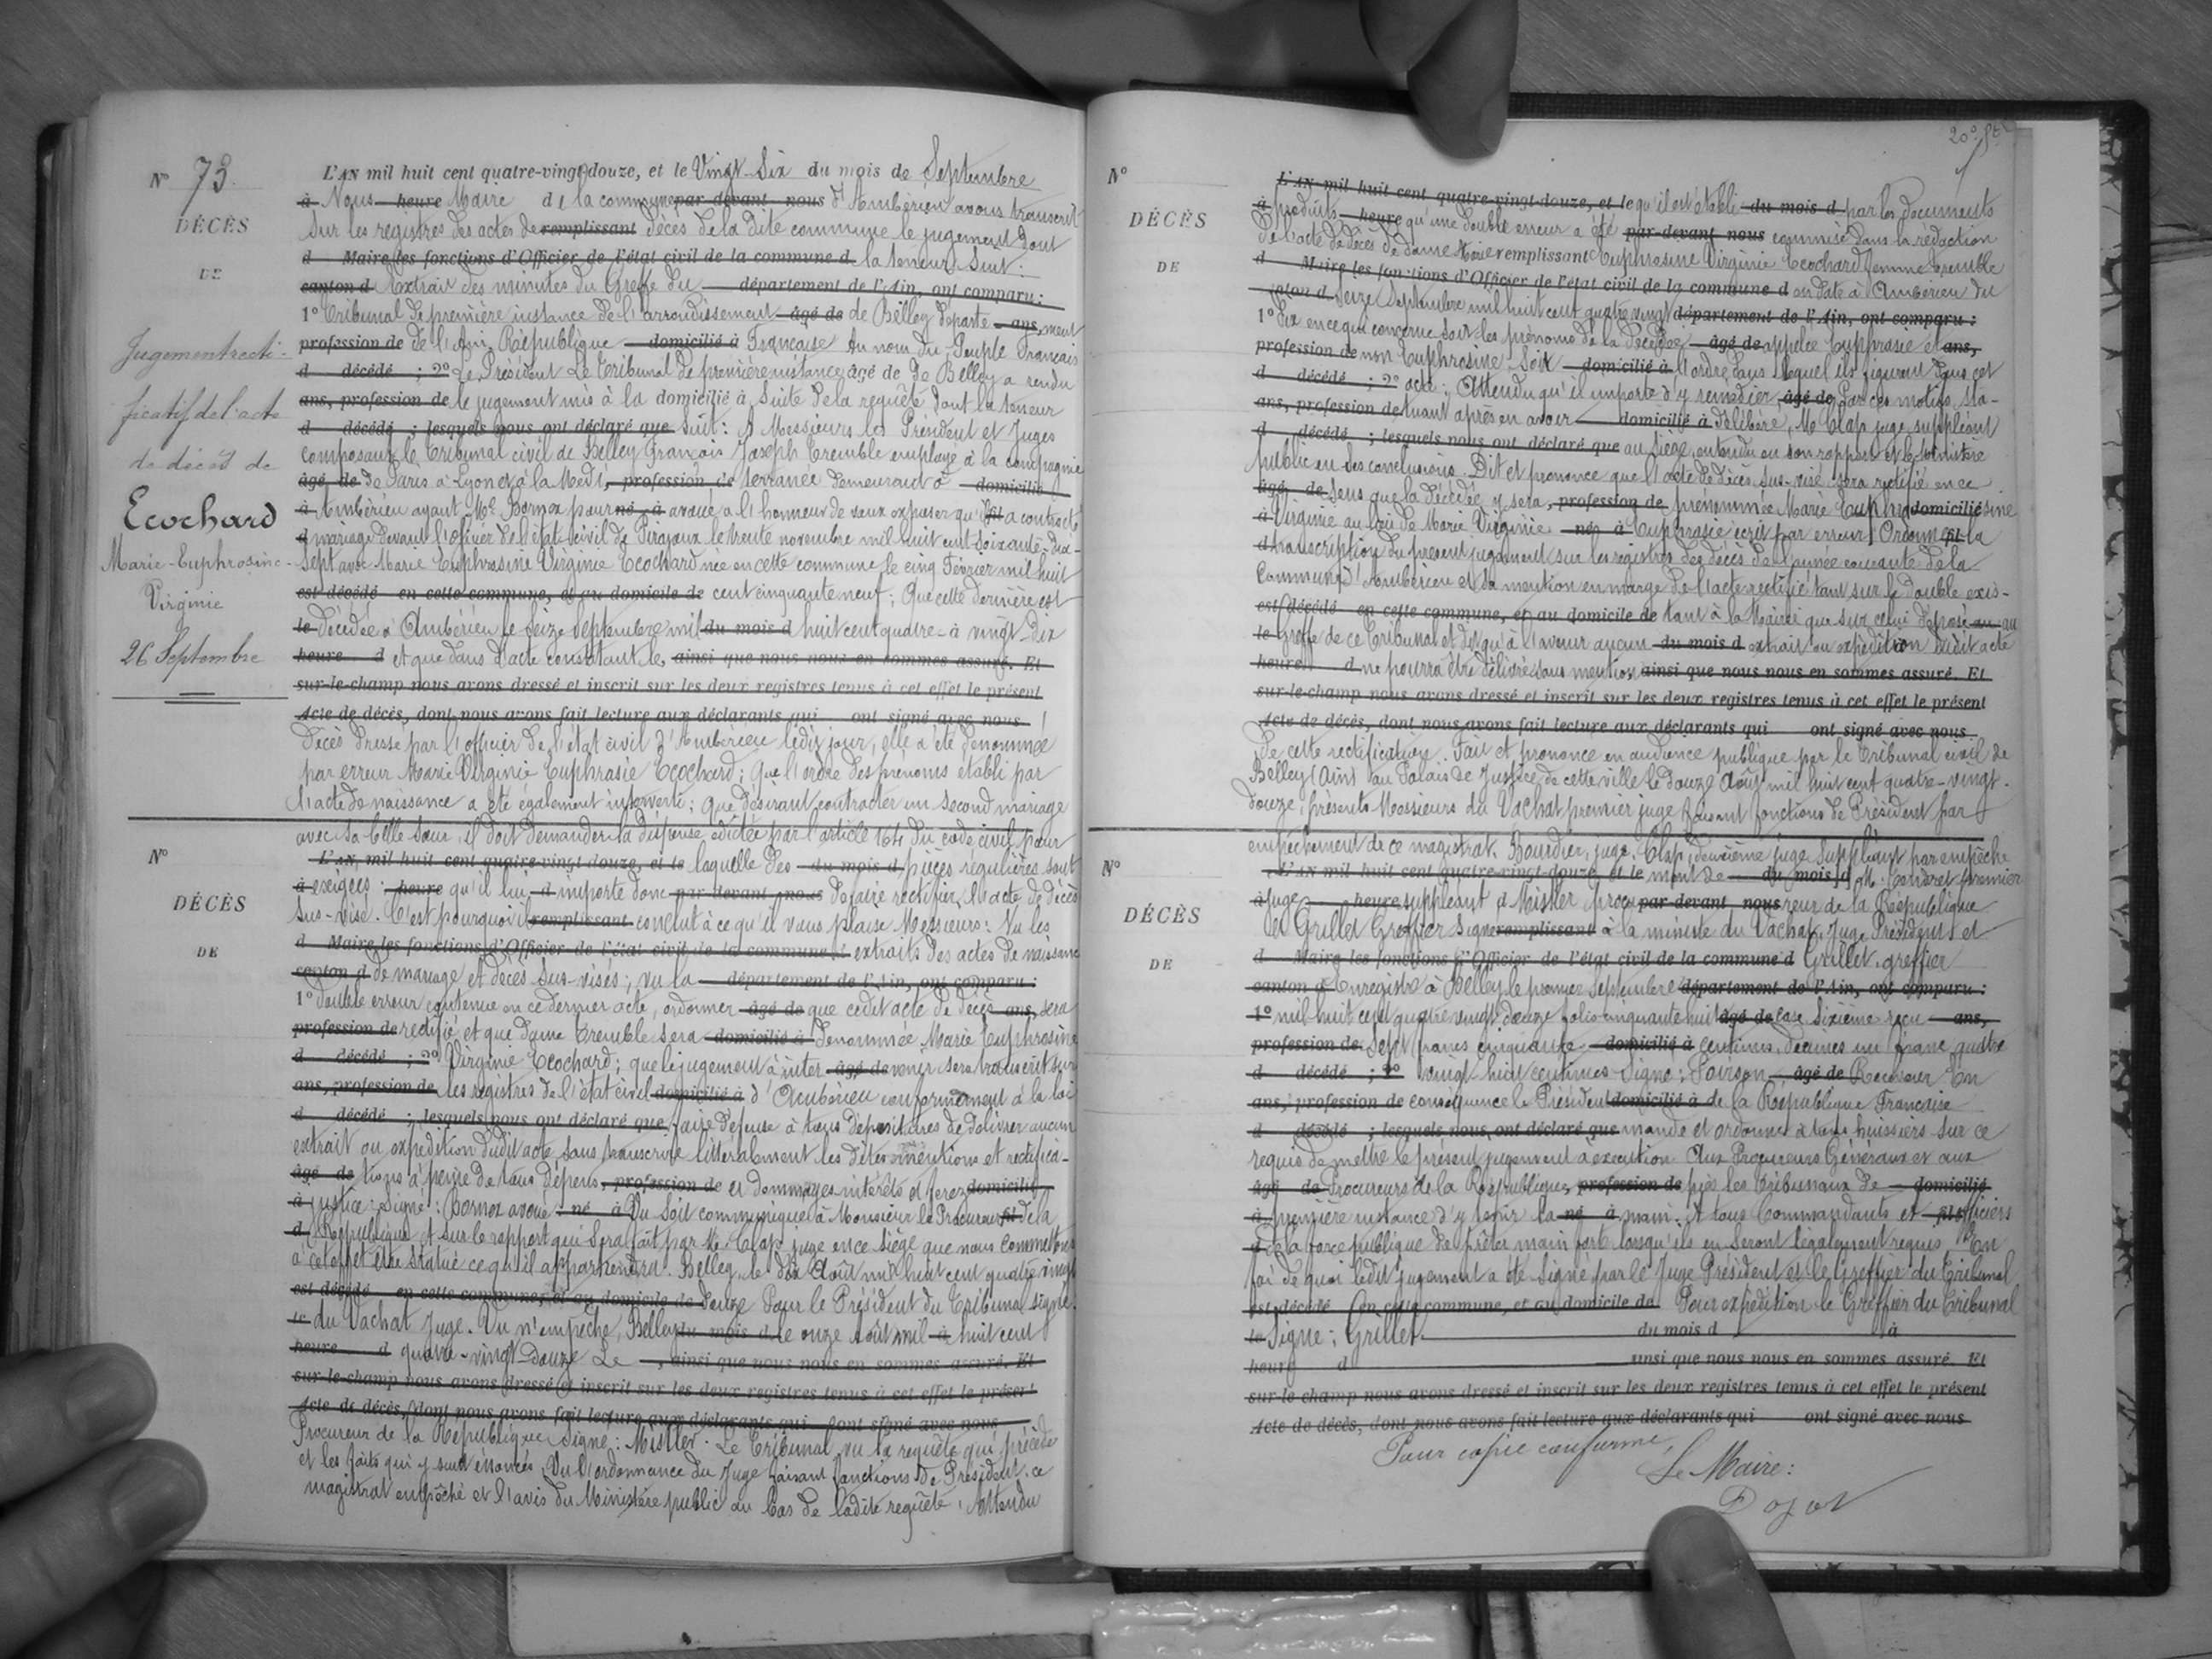 N° 73
DÉCÈS
DE
Jugement recti-
ficatif de l'acte
de décès de
Ecochard
Marie-Euphrosine-
Virginie
26 Septembre
L'AN mil huit cent quatre-vingt-douze, et le Vingt-Six du mois de Septembre
à Nous heure Maire de la commune par devant nous d'Ambérieu avons transcrit
sur les registres des actes de remplissant décès de la dite commune le jugement dont
d Maire les fonctions d'Officier de l'état civil de la commune d la teneur suit :
canton d Extrait des minutes du Greffe du département de l'Ain, ont comparu :
1° Tribunal de première instance de l'arrondissement âgé de de Belley départe ans, ment
profession de de l'Ain, République domicilié à Française Au nom du Peuple Français
d décédé ; 2° Le Président Le Tribunal de première instance âgé de de Belley a rendu
ans, profession de le jugement mis à la domicilié à suite de la requête dont la teneur
d décédé ; lesquels nous ont déclaré que suit : A Messieurs les Président et Juges
composant le Tribunal civil de Belley François Joseph Tremble employé à la compagnie
âgé de de Paris à Lyon et à la Médi, profession de terranée demeurant à domicilié
à Ambérieu ayant Me Bornox pour né à avoué a l'honneur de vous exposer qu'il fil a contracté
d mariage devant l'officier de l'état civil de Pirajoux le trente novembre mil huit cent soixante-dix-
sept avec Marie Euphrosine Virginie Ecochard née en cette commune le cinq Février mil huit
est décédé en cette commune, et au domicile de cent cinquante neuf ; Que cette dernière est
le décédée à Ambérieu le seize septembre mil du mois d huit cent quatre-à vingt-dix
heure d et que dans l'acte constatant le, ainsi que nous nous en sommes assuré. Et
sur-le-champ nous avons dressé et inscrit sur les deux registres tenus à cet effet le présent
Acte de décès, dont nous avons fait lecture aux déclarants qui ont signé avec nous
décès dressé par l'officier de l'état civil d'Ambérieu ledit jour, elle a été dénommée
par erreur Marie Virginie Euphrasie Ecochard ; Que l'ordre des prénoms établi par
l'acte de naissance a été également interverti ; Que désirant contracter un second mariage
avec sa belle sœur, il doit demander la dispense édictée par l'article 164 du code civil pour
N°
DÉCÈS
DE
L'AN, mil huit cent quatre-vingt-douze, et le laquelle des du mois d pièces régulières sont
à exigées : heure qu'il lui d importe donc par devant nous de faire rectifier l'acte de décès
sus-visé. C'est pourquoi il remplissant conclut à ce qu'il vous plaise Messieurs : Vu les
d Maire les fonctions d'Officier de l'état civil de la commune d extraits des actes de naissance
canton d de mariage et décès sus-visés ; vu la département de l'Ain, ont comparu :
1° double erreur contenue en ce dernier acte, ordonner âgé de que cedit acte de décès ans, sera
profession de rectifié et que dame Tremble sera domicilié à dénommée Marie Euphrosine
d décédé ; 2° Virginie Ecochard ; que le jugement à inter âgé de venir sera transcrit sur
ans, profession de les registres de l'état civil domicilié à d'Ambérieu conformément à la loi
d décédé ; lesquels nous ont déclaré que faire défense à tous dépositaires de délivrer aucun
extrait ou expédition dudit acte sans transcrire littéralement les dites mentions et rectifica-
âgé de tions à peine de tous dépens, profession de et dommages-intérêts et ferez domicilié
à justice : Signé : Bornox avoué. né à Vu Soit communiqué à Monsieur le Procureur fil de la
d République et sur le rapport qui sera fait par Mr Clap juge en ce siège que nous commettons
à cet effet être statué ce qu'il appartiendra. Belley, le dix Août mil huit cent quatre vingt
est décédé en cette commune, et au domicile de douze Pour le Président du Tribunal signé :
le du Vachat Juge. Vu n'empêche, Belley du mois d le onze Août mil à huit cent
heure d quatre-vingt-douze Le , ainsi que nous nous en sommes assuré. Et
sur-le-champ nous avons dressé et inscrit sur les deux registres tenus à cet effet le présent
Acte de décès, dont nous avons fait lecture aux déclarants qui ont signé avec nous
Procureur de la République Signé : Mistler. Le Tribunal, vu la requête qui précède
et les faits qui y sont énoncés, Vu l'ordonnance du Juge faisant fonctions de Président, ce
magistrat empêché et l'avis du Ministère public au bas de ladite requête, Attendu
N°
DÉCÈS
DE
L'AN mil huit cent quatre-vingt-douze, et le qu'il est établi du mois d par les documents
à produits heure qu'une double erreur a été par-devant nous commise dans la rédaction
de l'acte de décès de dame Marie remplissant Euphrosine Virginie Ecochard femme Tremble
d Maire les fonctions d'Officier de l'état civil de la commune d en date à Ambérieu du
canton d Seize Septembre mil huit cent quatre vingt département de l'Ain, ont comparu :
1° dix en ce qui concerne soit les prénoms de la décédée âgé de appelée Euphrasie et ans,
profession de non Euphrosine, soit domicilié à l'ordre dans lequel ils figurent dans cet
d décédé ; 2° acte ; Attendu qu'il importe d'y remédier, âgé de Par ces motifs, Sta-
ans, profession de tuant après en avoir domicilié à délibéré, Mr Clap juge suppléant
d décédé ; lesquels nous ont déclaré que au siège, entendu en son rapport et le Ministère
public en ses conclusions. Dit et prononce que l'acte de décès sus-visé sera rectifié en ce
âgé de sens que la décédée y sera, profession de prénommée Marie Euphro domicilié sine
à Virginie au lieu de Marie Virginie né à Euphrasie écrit par erreur. Ordonne fil la
d transcription du présent jugement sur les registres des décès de l'année courante de la
Commune d'Ambérieu et sa mention en marge de l'acte rectifié tant sur le double exis-
est décédé en cette commune, et au domicile de tant à la Mairie que sur celui déposé au
le Greffe de ce Tribunal et dit qu'à l'avenir aucun du mois d extrait ou expédition dudit acte
heure d ne pourra être délivrée sans mention ainsi que nous nous en sommes assuré. Et
sur-le-champ nous avons dressé et inscrit sur les deux registres tenus à cet effet le présent
Acte de décès, dont nous avons fait lecture aux déclarants qui ont signé avec nous
de cette rectification. Fait et prononcé en audience publique par le Tribunal civil de
Belley (Ain) au Palais de Justice de cette ville le douze Août mil huit cent quatre-vingt-
douze, présents Messieurs du Vachat premier juge faisant fonctions de Président par
empêchement de ce magistrat, Bourdier, juge, Clap, deuxième juge Suppléant par empêche
N°
DÉCÈS
DE
L'AN mil huit cent quatre-vingt-douze, et le ment de du mois d M. premier
à juge heure suppléant et Mistler procu par-devant nous reur de la République
et Grillet Greffier Signé remplissant à la minute du Vachat, Juge Président et
d Maire les fonctions d'Officier de l'état civil de la commune d Grillet, greffier
canton d Enregistré à Belley le premier Septembre département de l'Ain, ont comparu :
1° mil huit cent quatre vingt douze folio cinquante huit âgé de case sixième reçu ans,
profession de sept francs cinquante domicilié à centimes, décimes un franc quatre
d décédé ; 2° vingt huit centimes Signé : Poirson âgé de Receveur En
ans, profession de conséquence le Président domicilié à de la République Française
d décédé ; lesquels nous ont déclaré que mande et ordonne à tous huissiers sur ce
requis de mettre le présent jugement à exécution Aux Procureurs Généraux et aux
âgé de Procureurs de la République, profession de près les Tribunaux de domicilié
à première instance d'y tenir la né à main. A tous Commandants et fil officiers
d de la force publique de prêter main forte lorsqu'ils en seront légalement requis En
foi de quoi ledit jugement a été signé par le Juge Président et le Greffier du Tribunal
est décédé en cette commune, et au domicile de Pour expédition le Greffier du Tribunal
le Signé : Grillet. du mois d à
heure d ainsi que nous nous en sommes assuré. Et
sur-le-champ nous avons dressé et inscrit sur les deux registres tenus à cet effet le présent
Acte de décès, dont nous avons fait lecture aux déclarants qui ont signé avec nous
Pour copie conforme,
Le Maire :